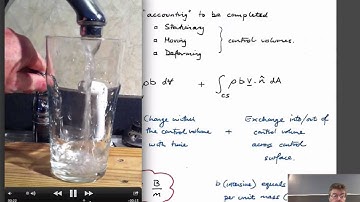 accounting" to be completed
a Stationary
a Moving
a Deforming
control volumes.
ρb d∀ + ∫cs ρb V · n̂ dA
Change within
the control volume
with time
+
Exchange into/out of
control volume
across control
surface.
B
m
b (intensive) equals
per unit mass